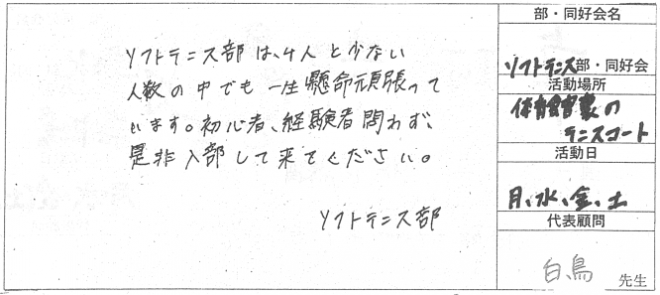 ソフトテニス部は、4人と少ない
人数の中でも一生懸命頑張って
います。初心者、経験者問わず、
是非入部して来てください。
ソフトテニス部
部・同好会名
ソフトテニス部・同好会
活動場所
体育館裏の
テニスコート
活動日
月、水、金、土
代表顧問
白鳥 先生